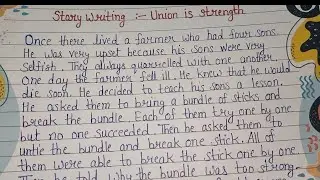 Story Writing :- Union is strength
Once there lived a farmer who had four sons.
He was very upset because his sons were very
selfish. They always quarrelled with one another.
One day the farmer fell ill. He knew that he would
die soon. He decided to teach his sons a lesson.
He asked them to bring a bundle of sticks and
break the bundle. Each of them try one by one
but no one succeeded. Then he asked them to
untie the bundle and break one stick. All of
them were able to break the stick one by one.
he told why the bundle was too strong.